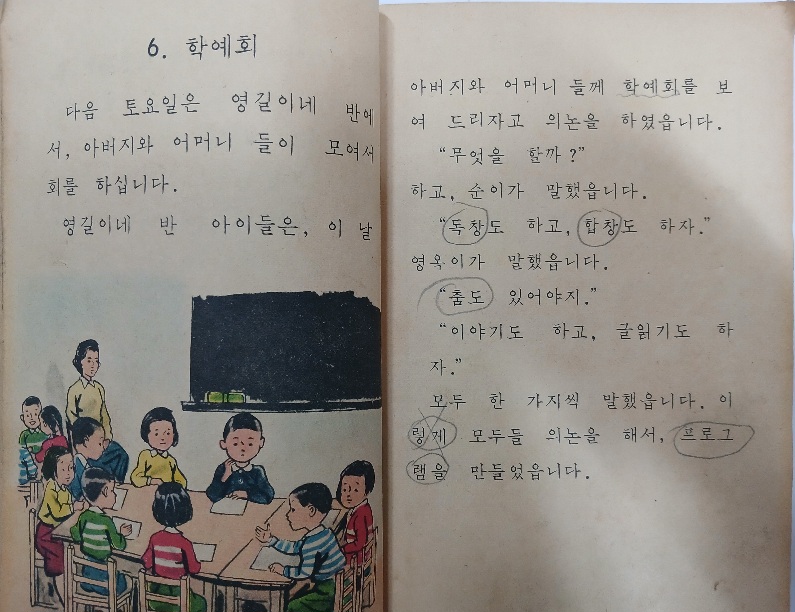 6. 학예회
다음 토요일은 영길이네 반에
서, 아버지와 어머니 들이 모여서
회를 하십니다.
영길이네 반 아이들은, 이 날
아버지와 어머니 들께 학예회를 보
여 드리자고 의논을 하였읍니다.
“무엇을 할까?”
하고, 순이가 말했읍니다.
“독창도 하고, 합창도 하자.”
영옥이가 말했읍니다.
“춤도 있어야지.”
“이야기도 하고, 글읽기도 하
자.”
모두 한 가지씩 말했읍니다. 이
렇게 모두들 의논을 해서, 프로그
램을 만들었읍니다.